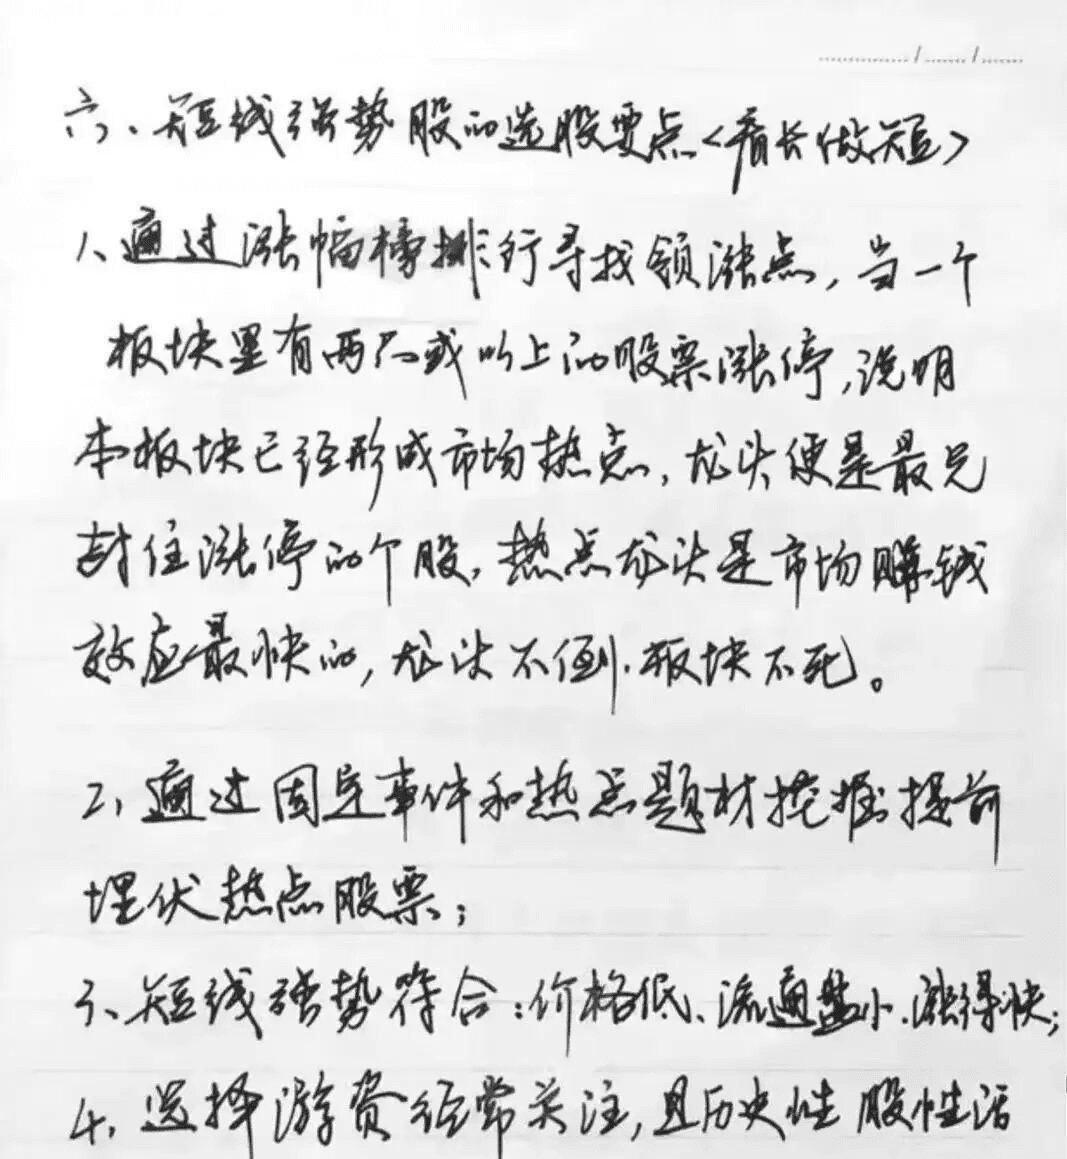 六、短线强势股的选股要点<看长做短>
1、通过涨幅榜排行寻找领涨点，当一个
板块里有两只或以上的股票涨停，说明
本板块已经形成市场热点，龙头便是最先
封住涨停的个股，热点龙头是市场赚钱
效应最快的，龙头不倒、板块不死。
2、通过固定事件和热点题材挖掘提前
埋伏热点股票；
3、短线强势符合：价格低、流通盘小、涨得快；
4、选择游资经常关注，且历史性股性活